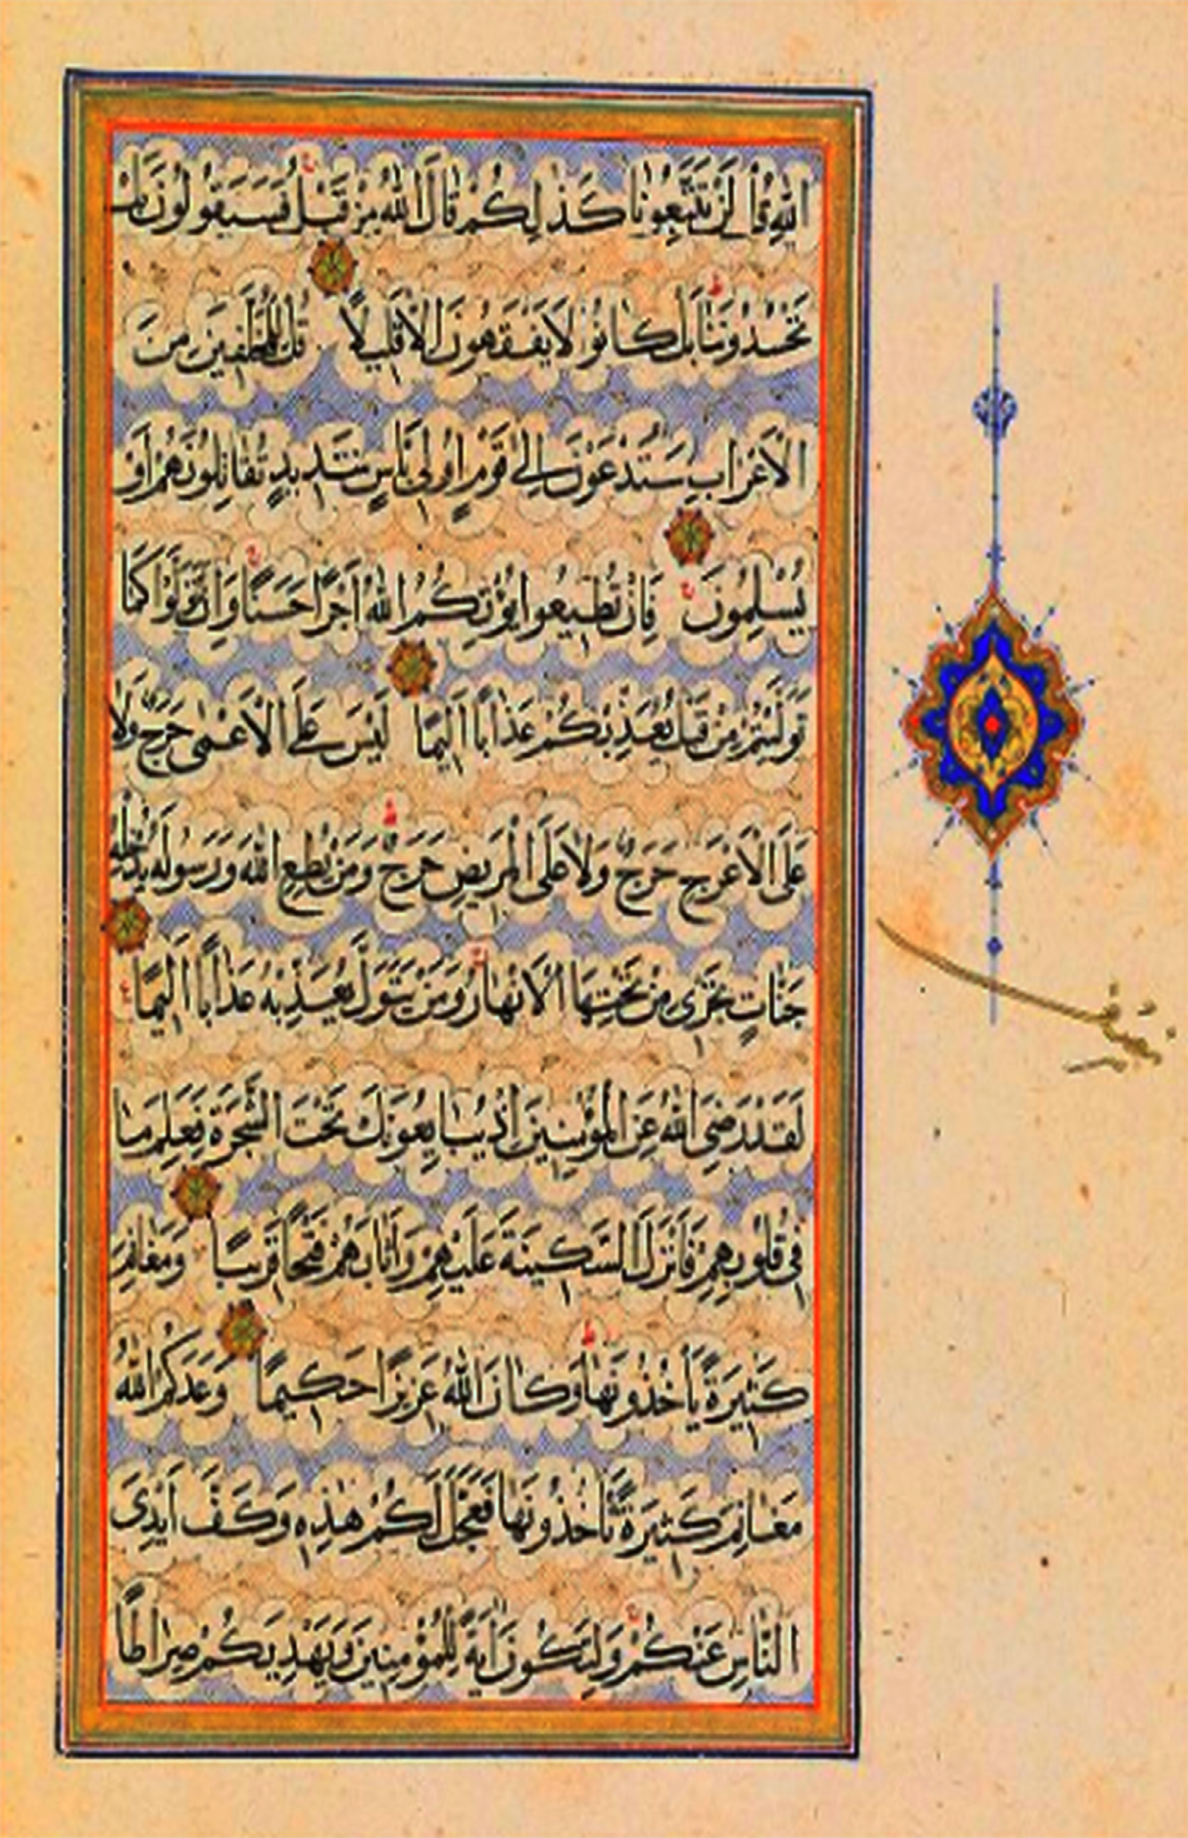 الله قُل لَنْ تَتَّبِعُونَا كَذٰلِكُمْ قَالَ اللهُ مِنْ قَبْلُ فَسَيَقُولُونَ بَلْ
تَحْسُدُونَنَا بَلْ كَانُوا لَا يَفْقَهُونَ اِلَّا قَلِيلًا قُلْ لِلْمُخَلَّفِينَ مِنَ
الْاَعْرَابِ سَتُدْعَوْنَ اِلٰى قَوْمٍ اُولِى بَاْسٍ شَدِيدٍ تُقَاتِلُونَهُمْ اَوْ
يُسْلِمُونَ فَاِنْ تُطِيعُوا يُؤْتِكُمُ اللهُ اَجْرًا حَسَنًا وَاِنْ تَتَوَلَّوْا كَمَا
تَوَلَّيْتُمْ مِنْ قَبْلُ يُعَذِّبْكُمْ عَذَابًا اَلِيمًا لَيْسَ عَلَى الْاَعْمٰى حَرَجٌ وَلَا
عَلَى الْاَعْرَجِ حَرَجٌ وَلَا عَلَى الْمَرِيضِ حَرَجٌ وَمَنْ يُطِعِ اللهَ وَرَسُولَهُ يُدْخِلْهُ
جَنَّاتٍ تَجْرِى مِنْ تَحْتِهَا الْاَنْهَارُ وَمَنْ يَتَوَلَّ يُعَذِّبْهُ عَذَابًا اَلِيمًا
لَقَدْ رَضِىَ اللهُ عَنِ الْمُؤْمِنِينَ اِذْ يُبَايِعُونَكَ تَحْتَ الشَّجَرَةِ فَعَلِمَ مَا
فِى قُلُوبِهِمْ فَاَنْزَلَ السَّكِينَةَ عَلَيْهِمْ وَاَثَابَهُمْ فَتْحًا قَرِيبًا وَمَغَانِمَ
كَثِيرَةً يَأْخُذُونَهَا وَكَانَ اللهُ عَزِيزًا حَكِيمًا وَعَدَكُمُ اللهُ
مَغَانِمَ كَثِيرَةً تَأْخُذُونَهَا فَعَجَّلَ لَكُمْ هٰذِهِ وَكَفَّ اَيْدِىَ
النَّاسِ عَنْكُمْ وَلِتَكُونَ اٰيَةً لِلْمُؤْمِنِينَ وَيَهْدِيَكُمْ صِرَاطًا